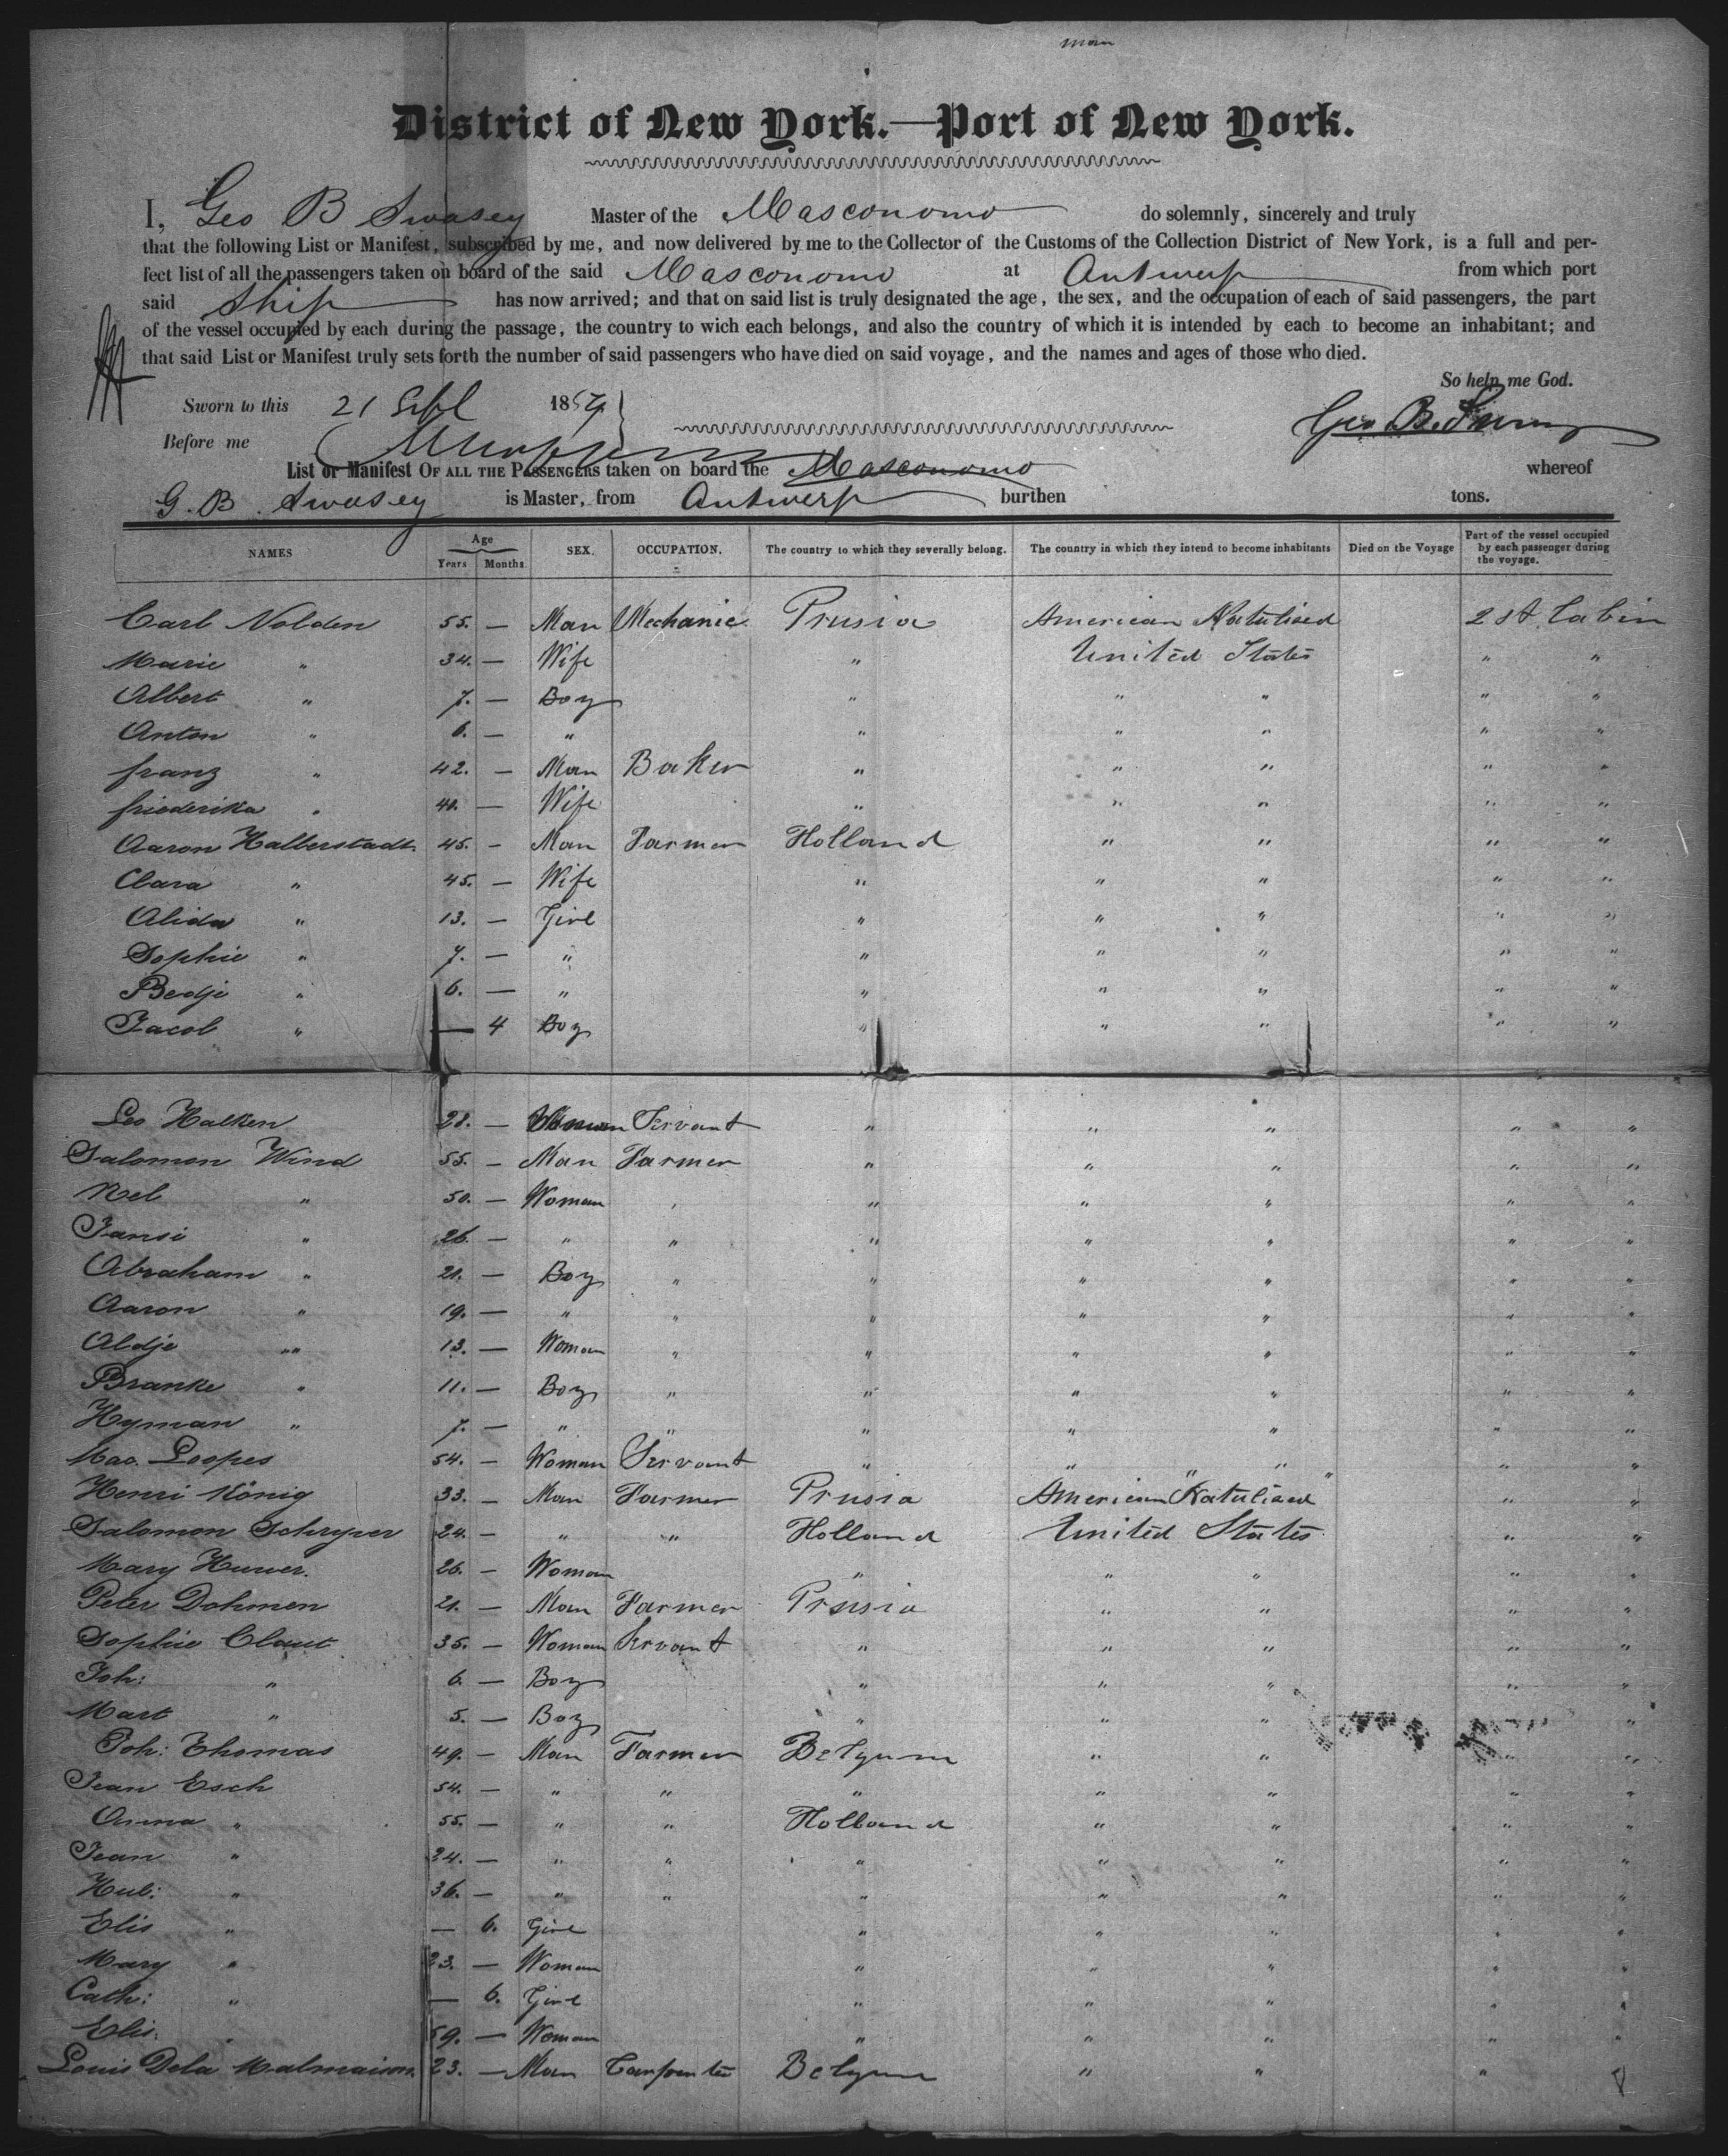 man
District of New York.—Port of New York.
I, Geo B Swasey Master of the Masconomo do solemnly, sincerely and truly
that the following List or Manifest, subscribed by me, and now delivered by me to the Collector of the Customs of the Collection District of New York, is a full and per-
fect list of all the passengers taken on board of the said Masconomo at Antwerp from which port
said Ship has now arrived; and that on said list is truly designated the age, the sex, and the occupation of each of said passengers, the part
of the vessel occupied by each during the passage, the country to wich each belongs, and also the country of which it is intended by each to become an inhabitant; and
that said List or Manifest truly sets forth the number of said passengers who have died on said voyage, and the names and ages of those who died.
So help me God.
Sworn to this 21 Sept 1857 Geo B. Swasey
Before me
List or Manifest OF ALL THE PASSENGERS taken on board the Masconomo whereof
G. B. Swasey is Master, from Antwerp burthen tons.
NAMES Age Years Months SEX. OCCUPATION. The country to which they severally belong. The country in which they intend to become inhabitants Died on the Voyage Part of the vessel occupied by each passenger during the voyage.
Carl Nolden 55. — Man Mechanic Prusia American Natulised 2 st Cabin
Marie " 34. — Wife " United States " "
Albert " 7. — Boy " " " " "
Anton " 6. — " " " " " "
franz " 42. — Man Baker " " " " "
friederika " 40. — Wife " " " " "
Aaron Halberstadt. 45. - Man Farmer Holland " " " "
Clara " 45. — Wife " " " " "
Alida " 13. — Girl " " " " "
Sophie " 7. — " " " " " "
Bedje " 6. — " " " " " "
Jacob " — 4 Boy " " " " "
Leo Halken 28. — Woman Servant " " " " "
Salomon Wind 55. — Man Farmer " " " " "
Nel " 50. — Woman " " " " " "
Jansi " 26. — " " " " " " "
Abraham " 21. — Boy " " " " " "
Aaron " 19. — " " " " " " "
Aldje " 13. — Woman " " " " " "
Branke " 11. — Boy " " " " " "
Hyman " 7. — " " " " " " "
Mao. Loopes 54. — Woman Servant " " " " "
Henri König 33. — Man Farmer Prusia American Natulised " "
Salomon Schryver 24. — " " Holland United States " "
Mary Huwer. 26. — Woman " " " " "
Peter Dohmen 21. — Man Farmer Prusia " " " "
Sophie Claut 35. — Woman Servant " " " " "
Joh: " 6. — Boy " " " " "
Mart " 5. — Boy " " " " "
Joh: Thomas 49. — Man Farmer Belgium " " " "
Jean Esch 54. — " " " " " " "
Anna " 55. — " " Holland " " " "
Jean " 24. — " " " " " " "
Hub: " 36. — " " " " " " "
Elis " — 6. Girl " " " " "
Mary " 23. — Woman " " " " "
Cath: " — 6. Girl " " " " "
Elis. " 59. — Woman " " " " "
Louis Dela Malmaison. 23. — Man Carpenter Belgium " " "